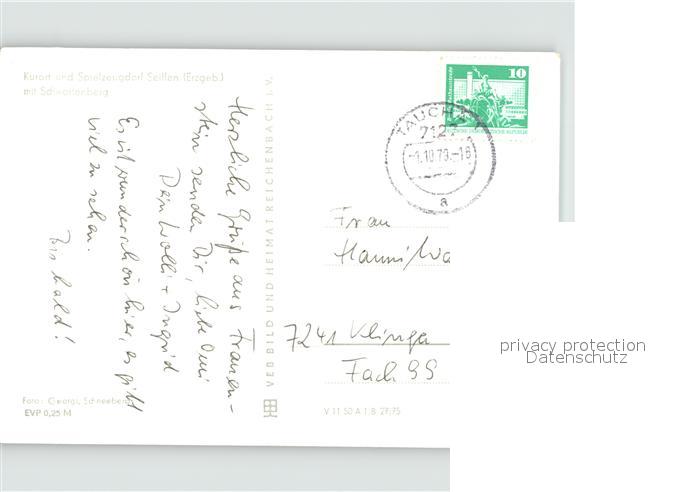 Kurort und Spielzeugdorf Seiffen (Erzgeb.)
mit Schwartenberg
Herzliche Grüße aus Frauen-
stein senden Dir, liebe Omi
Dein Wolli + Ingrid
Es ist wunderschön hier, es gibt
viel zu sehen.
Bis bald!
Foto: Georgi, Schneeberg
EVP 0,25 M
VEB BILD UND HEIMAT REICHENBACH I. V.
V 11 50 A 1 B 27/75
10
DEUTSCHE DEMOKRATISCHE REPUBLIK
TAUCHA
7127
-1.10.79.-16
a
Frau
Hanni
7241 Klinga
Fach 99
privacy protection
Datenschutz